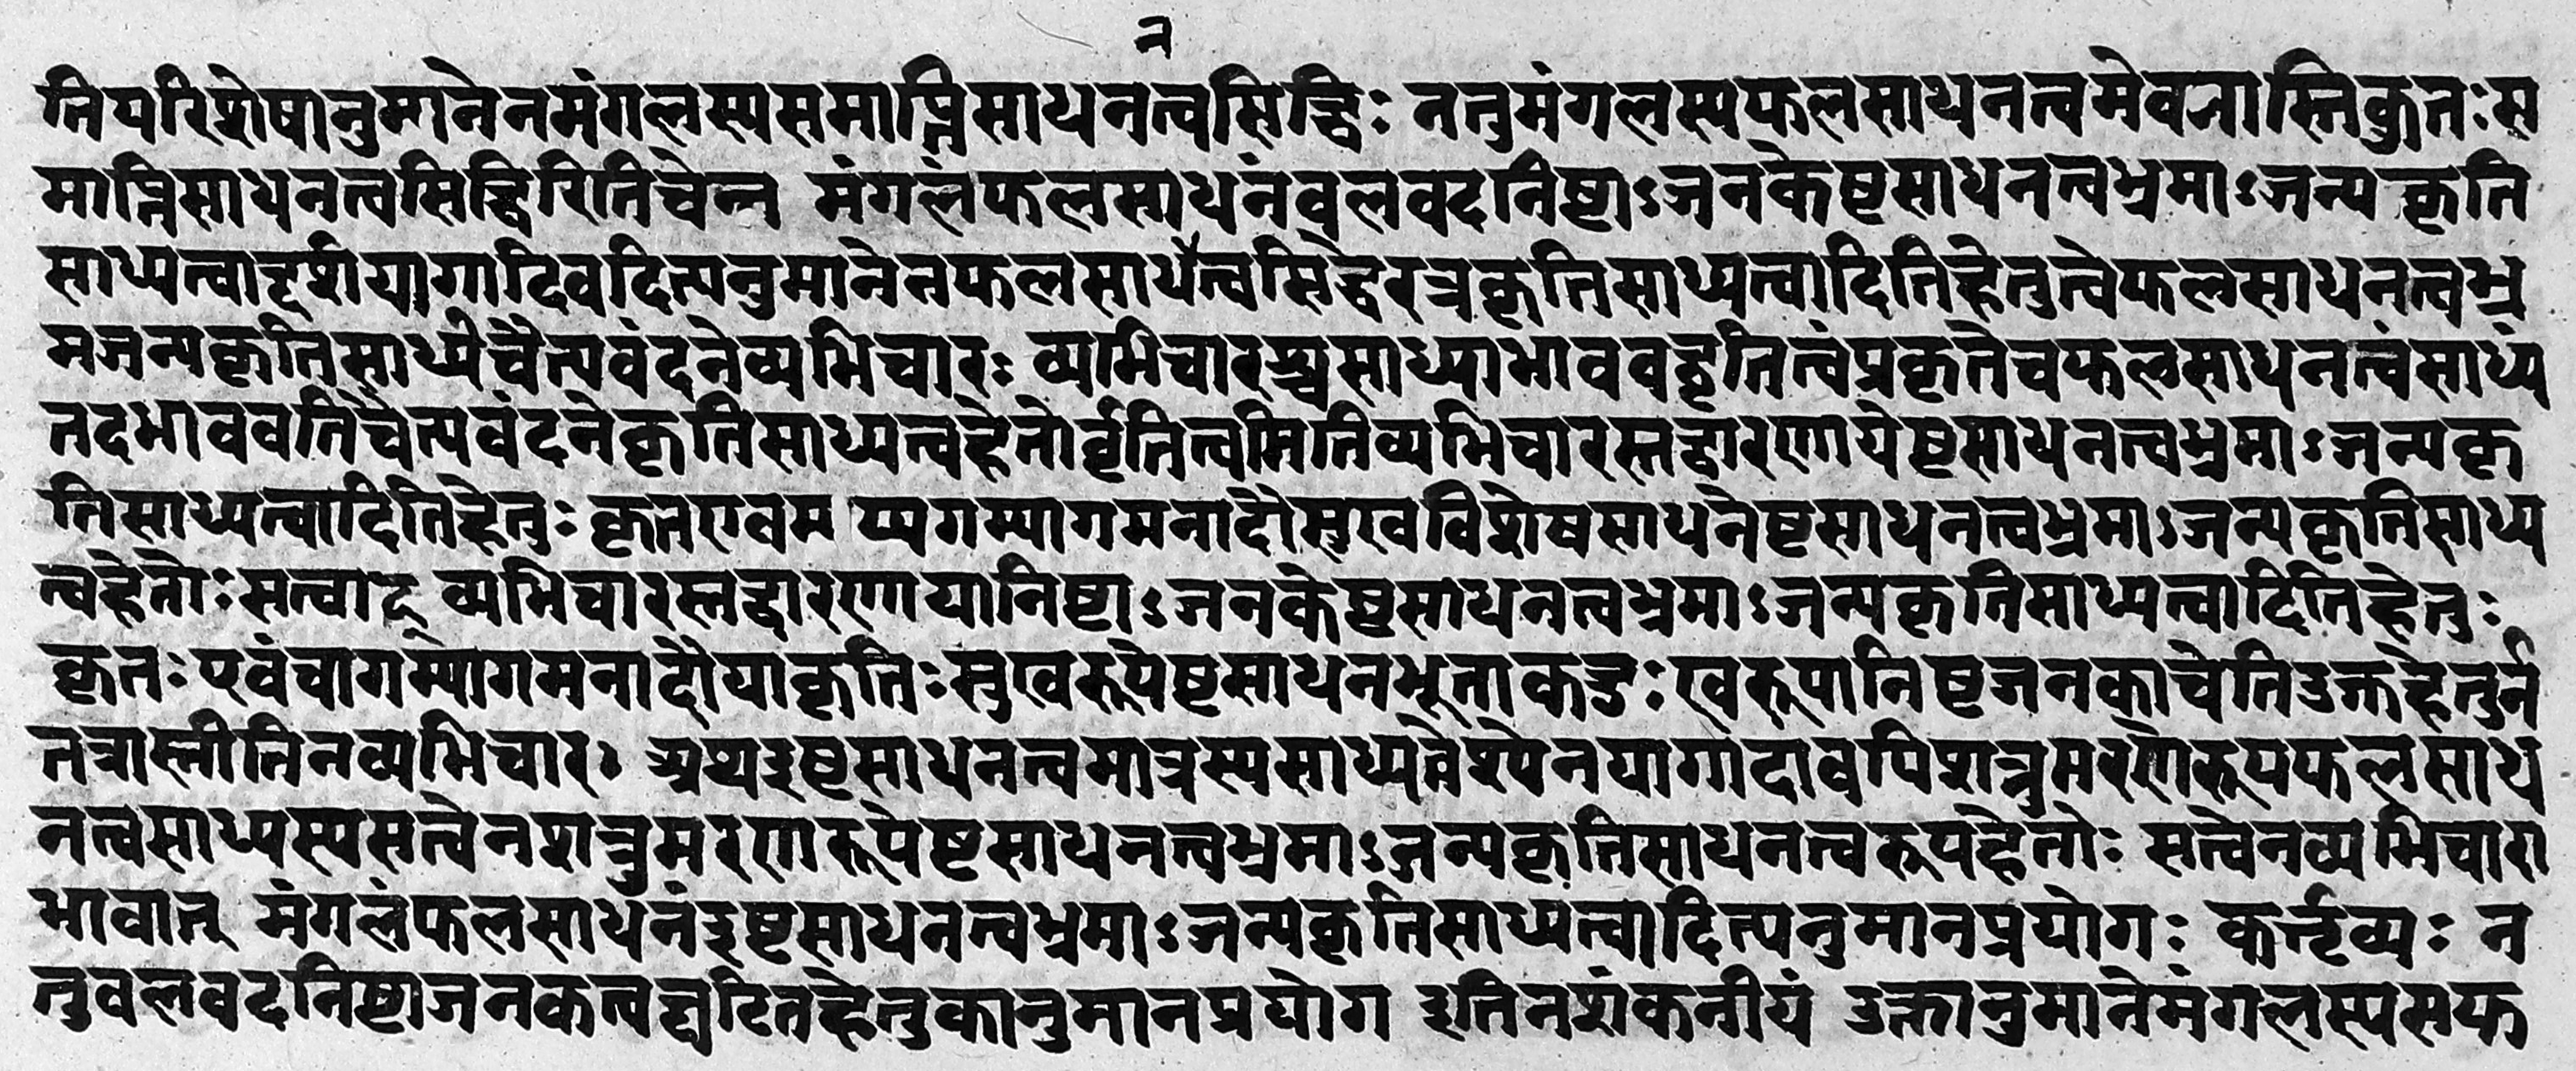 न
तिपरिशेषानुमानेनमंगलस्यसमाप्तिसाधनत्वसिद्धिः ननुमंगलस्यफलसाधनत्वमेवनास्तिकुतःस
माप्तिसाधनत्वसिद्धिरितिचेन्न मंगलंफलसाधनंबलवदनिष्टाऽजनकेष्टसाधनत्वभ्रमाऽजन्यकृति
साध्यत्वाद्दर्शयागादिवदित्यनुमानेनफलसाधत्वसिद्धेरत्रकृतिसाध्यत्वादितिहेतुत्वेफलसाधनत्वभ्र
मजन्यकृतिसाध्येचैत्यवंदनेव्यभिचारः व्यभिचारश्चसाध्याभाववद्वृतित्वंप्रकृतेचफलसाधनत्वंसाध्यं
तदभाववतिचैत्यवंदनेकृतिसाध्यत्वहेतोर्वृतित्वमितिव्यभिचारस्तद्वारणायेष्टसाधनत्वभ्रमाऽजन्यकृ
तिसाध्यत्वादितिहेतुः कृतएवम प्यगम्यागमनादौसुखविशेषसाधनेष्टसाधनत्वभ्रमाऽजन्यकृतिसाध्य
त्वहेतोःसत्वाद् व्यभिचारस्तद्वारणायानिष्टाऽजनकेष्टसाधनत्वभ्रमाऽजन्यकृतिसाध्यत्वादितिहेतुः
कृतः एवंचागम्यागमनादौयाकृतिःसुखरूपेष्टसाधनभूताकडुःखरूपानिष्टजनकाचेतिउक्तहेतुर्न
तत्रास्तीतिनव्यभिचारः अथइष्टसाधनत्वमात्रस्यसाध्यत्वेश्येनयागादावपिशत्रुमरणरूपफलसाध
नत्वसाध्यस्यसत्वेनशत्रुमरणरूपेष्टसाधनत्वभ्रमाऽजन्यकृतिसाधनत्वरूपहेतोः सत्वेनव्यभिचारा
भावात् मंगलंफलसाधनंइष्टसाधनत्वभ्रमाऽजन्यकृतिसाध्यत्वादित्यनुमानप्रयोगः कर्त्तव्यः न
तुबलवदनिष्टाजनकत्वघटितहेतुकानुमानप्रयोग इतिनशंकनीयं उक्तानुमानेमंगलस्यसफ